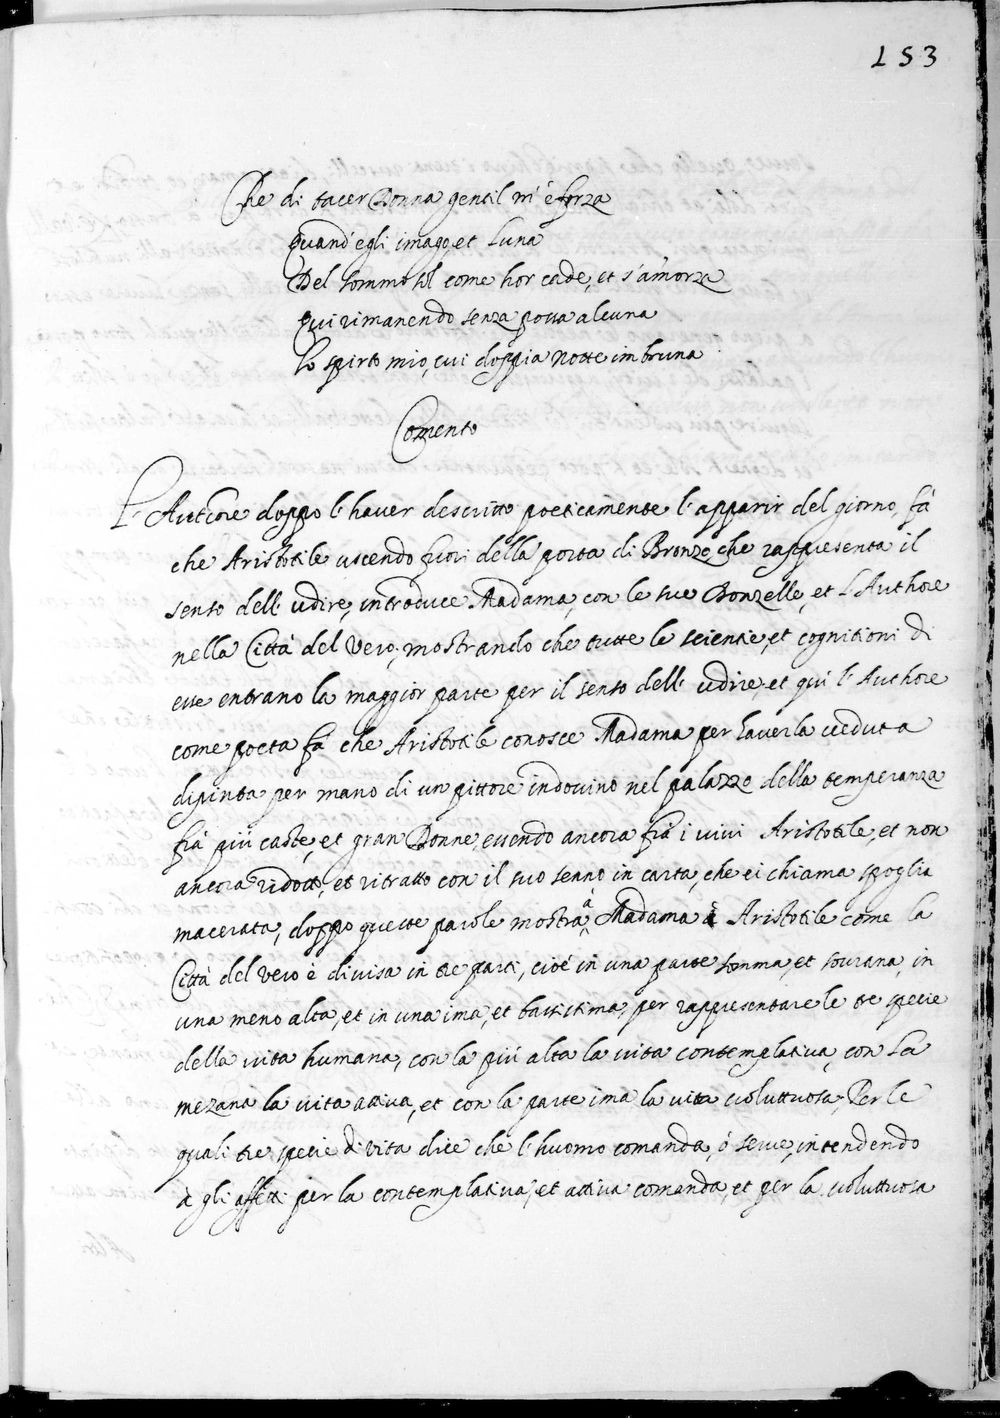 153
Che di tacer Donna gentil m'è forza
Quand'egli imago, et Luna
Del sommo sol come hor cade, et s'amorza
Qui rimanendo senza possa alcuna
Lo spirto mio, cui doppia notte imbruna.
Comento
L'Authore doppo l'haver descritto poeticamente l'apparir del giorno, fà
che Aristotile uscendo fuori della porta di Bronzo, che rappresenta il
senso dell'udire, introduce Madama, con le sue Donzelle, et l'Authore
nella Città del Vero, mostrando che tutte le scientie, et cognitioni di
esse entrano la maggior parte per il senso dell'udire, et quì l'Authore
come poeta fà che Aristotile conosce Madama per haverla veduta
dipinta per mano di un pittore indovino nel palazzo della temperanza
frà più caste, et gran Donne, essendo ancora frà i vivi Aristotile, et non
ancora ridotto, et ritratto con il suo senno in carta, che ei chiama spoglia
macerata, doppo queste parole mostra à Madama Aristotile come la
Città del Vero è divisa in tre parti, cioè in una parte somma, et sourana, in
una meno alta, et in una ima, et bassissima, per rappresentare le tre specie
della vita humana, con la più alta la vita contemplativa, con la
mezana la vita attiva, et con la parte ima la vita voluttuosa, Per le
quali tre specie di vita dice che l'huomo comanda, ò serve, intendendo
à gli affetti per la contemplativa, et attiva comanda, et per la voluttuosa